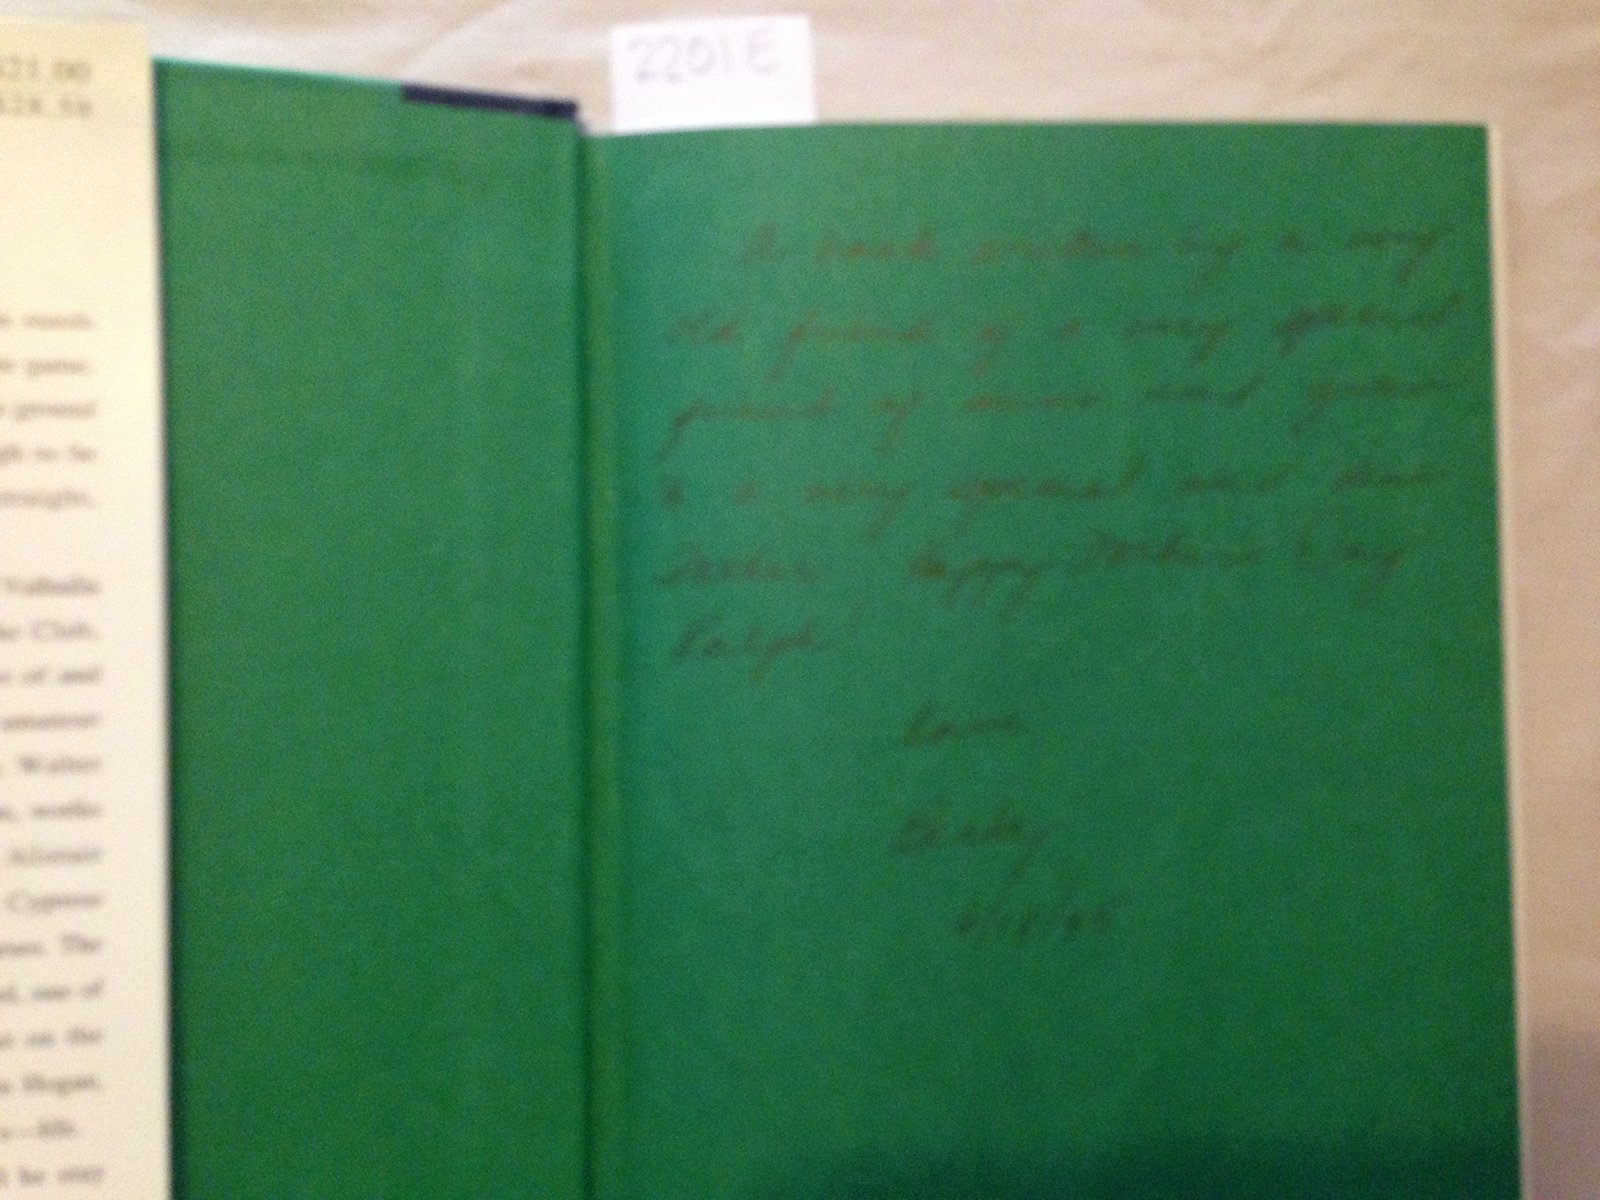 2201E
A book written by a very
old friend of a very special
friend of mine and given
to a very special and dear
Father. Happy Father's Day
Ralph
Love
6/18/95
$21.00
$28.50
game.
ground
to be
straight,
Valhalla
Club,
of and
amateur
Walter
works
Alistair
Cypress
The
one of
on the
Hogan,
life
he stay